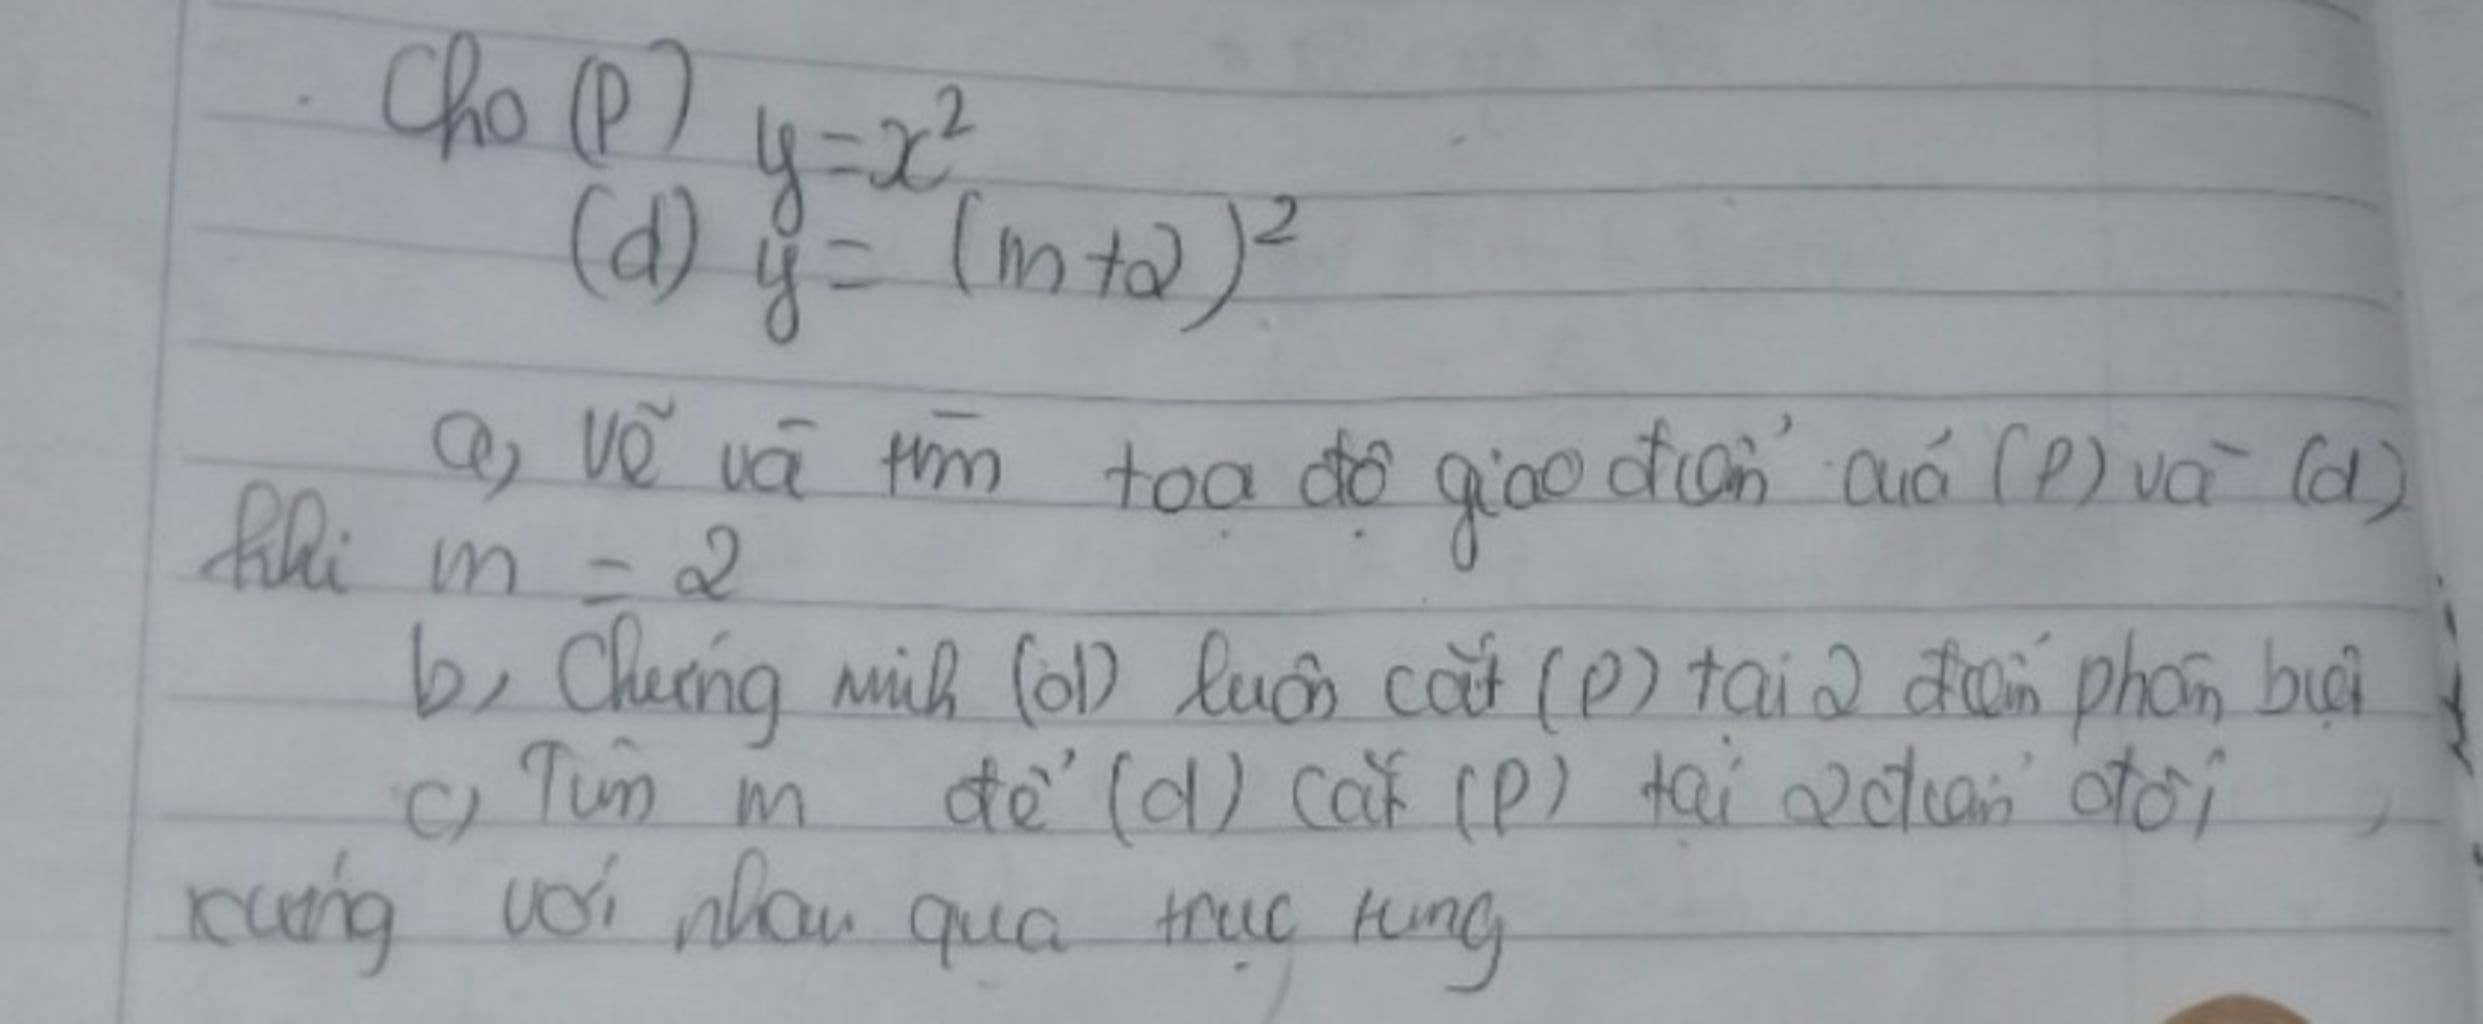 Cho (P) y = x²
(d) y = (m+2)²
a, Vẽ và tìm toạ độ giao điểm của (P) và (d)
khi m = 2
b, Chứng minh (d) luôn cắt (P) tại 2 điểm phân biệt
c) Tìm m để (d) cắt (P) tại 2 điểm đối
xứng với nhau qua trục tung